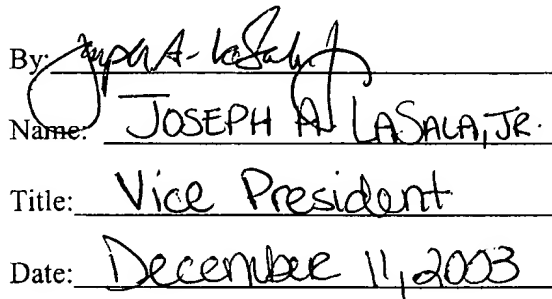 By: Joseph A. LaSala Jr
Name: JOSEPH A. LASALA, JR.
Title: Vice President
Date: December 11, 2003